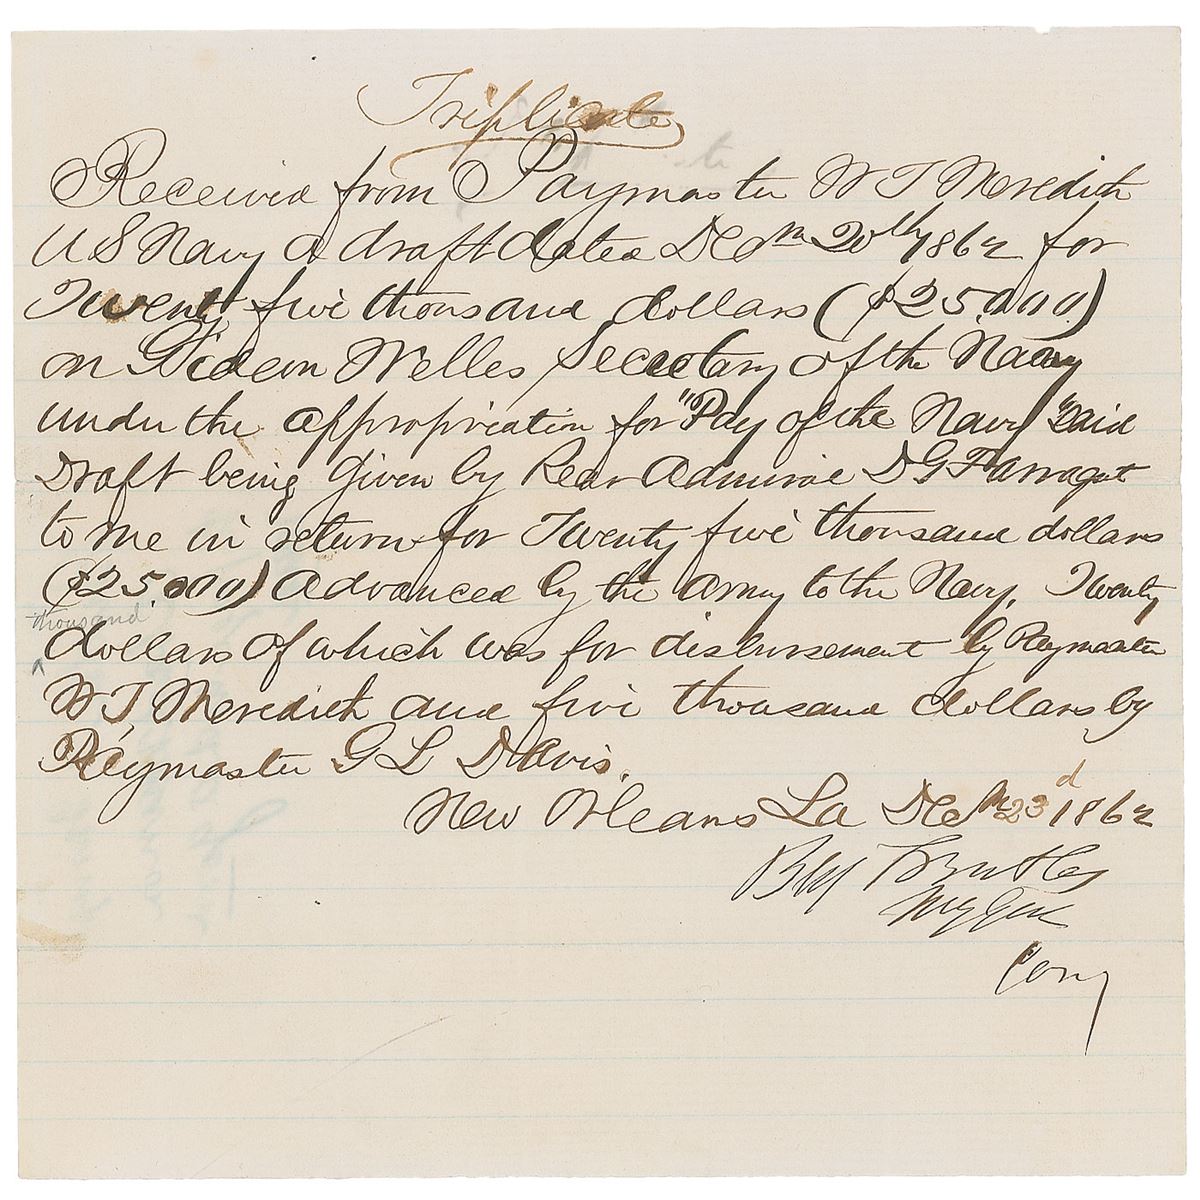 Triplicate
Received from Paymaster W T Meredith
U S Navy a draft dated Decm 20th 1862 for
Twenty five thousand dollars ($25.000)
on Gideon Welles Secretary of the Navy
under the appropriation for "Pay of the Navy" Said
Draft being given by Rear Admiral D G Farragut
to me in return for Twenty five thousand dollars
($25.000) advanced by the Army to the Navy, Twenty
thousand
dollars of which was for disbursement by Paymaster
W T, Meredith and five thousand dollars by
Paymaster G L Davis.
New Orleans La Decm 23d 1862
Benj F Butler
Maj Gen
Comg